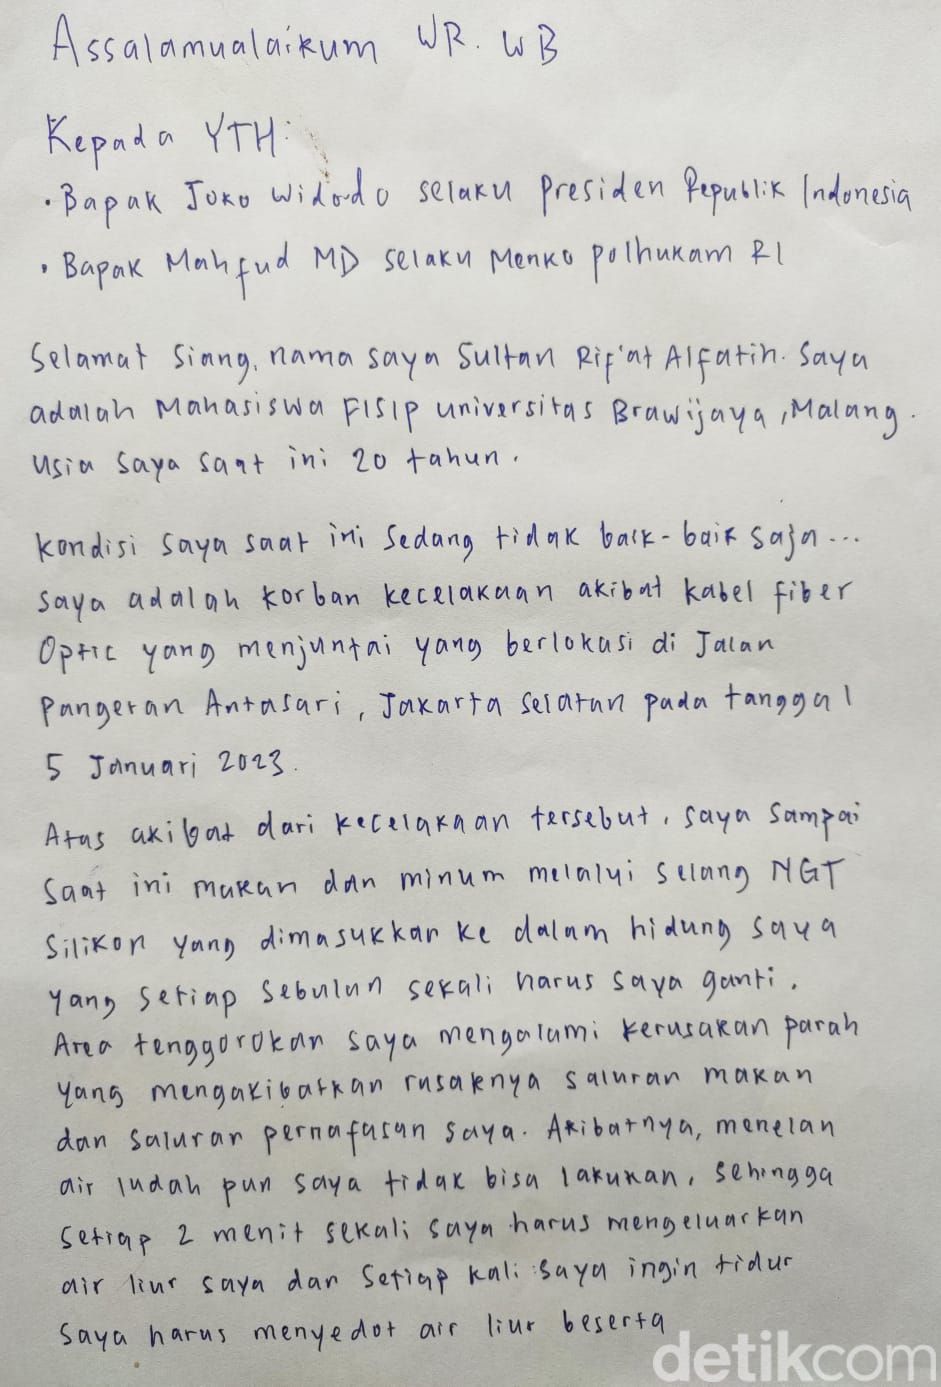 Assalamualaikum WR. WB
Kepada YTH:
• Bapak Joko Widodo selaku presiden Republik Indonesia
• Bapak Mahfud MD selaku Menko polhukam RI
Selamat Siang, nama saya Sultan Rif'at Alfatih. Saya
adalah Mahasiswa FISIP universitas Brawijaya, Malang.
Usia saya saat ini 20 tahun.
kondisi saya saat ini sedang tidak baik-baik saja...
saya adalah korban kecelakaan akibat kabel fiber
Optic yang menjuntai yang berlokasi di Jalan
Pangeran Antasari, Jakarta Selatan pada tanggal
5 Januari 2023.
Atas akibat dari kecelakaan tersebut, saya sampai
saat ini makan dan minum melalui selang NGT
Silikon yang dimasukkan ke dalam hidung saya
yang setiap sebulan sekali harus saya ganti.
Area tenggorokan saya mengalami kerusakan parah
yang mengakibatkan rusaknya saluran makan
dan saluran pernafasan saya. Akibatnya, menelan
air ludah pun saya tidak bisa lakukan, sehingga
setiap 2 menit sekali saya harus mengeluarkan
air liur saya dan setiap kali saya ingin tidur
saya harus menyedot air liur beserta
detikcom